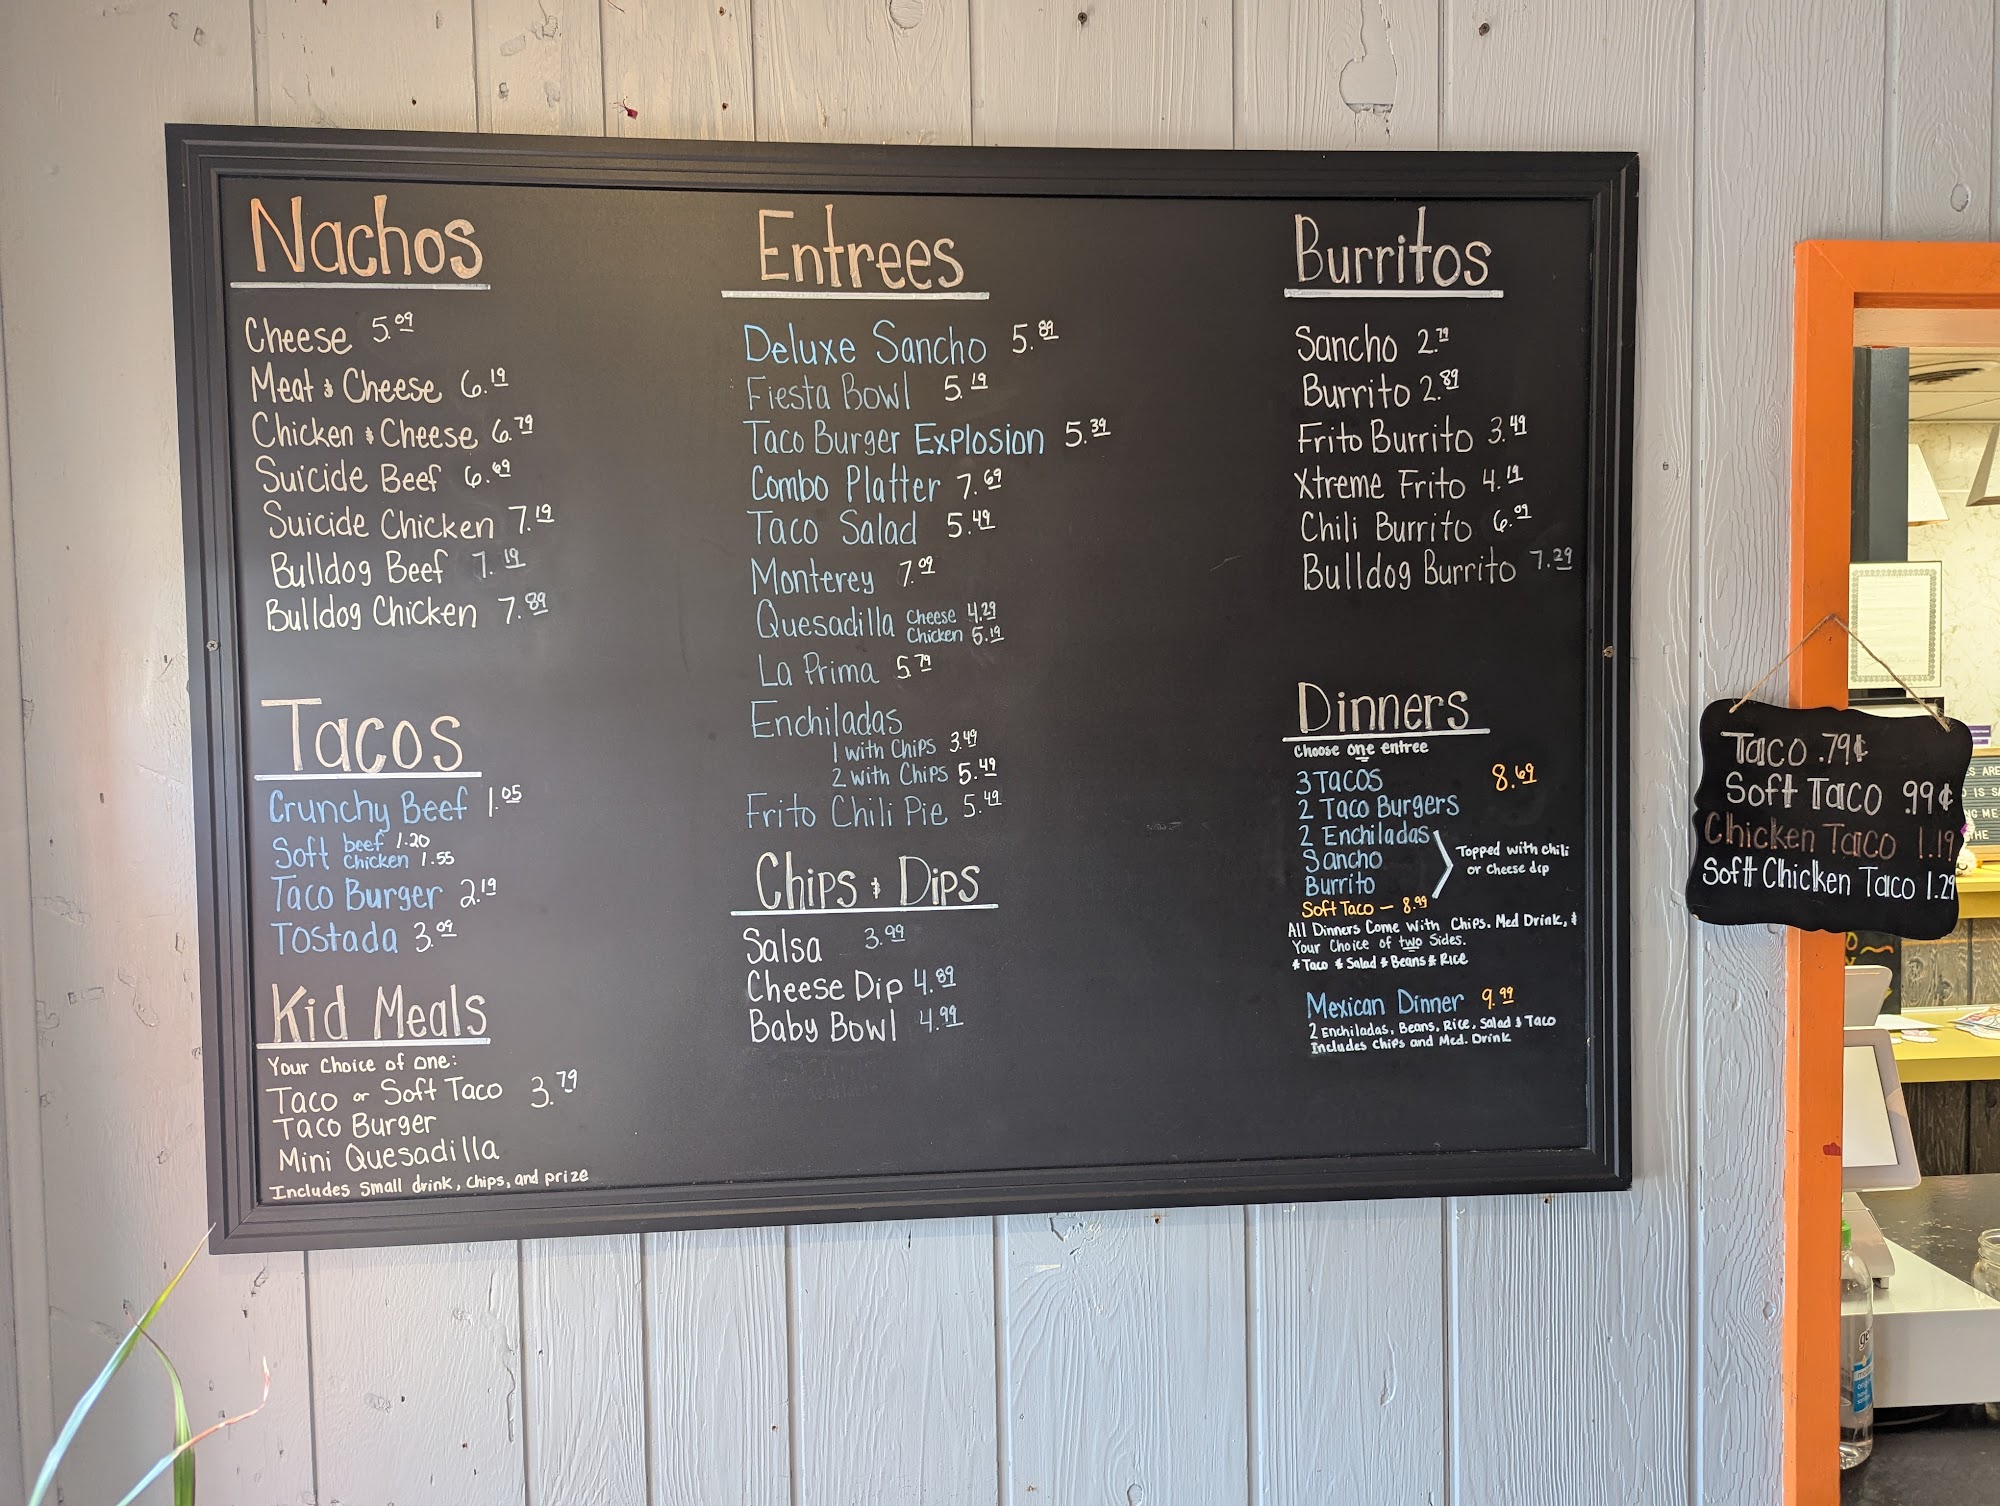 Nachos
Cheese 5.09
Meat & Cheese 6.19
Chicken & Cheese 6.79
Suicide Beef 6.69
Suicide Chicken 7.19
Bulldog Beef 7.19
Bulldog Chicken 7.89
Tacos
Crunchy Beef 1.05
Soft beef 1.20
Chicken 1.55
Taco Burger 2.19
Tostada 3.09
Kid Meals
Your Choice of one:
Taco or Soft Taco 3.79
Taco Burger
Mini Quesadilla
Includes small drink, chips, and prize
Entrees
Deluxe Sancho 5.89
Fiesta Bowl 5.19
Taco Burger Explosion 5.39
Combo Platter 7.69
Taco Salad 5.49
Monterey 7.09
Quesadilla Cheese 4.29
Chicken 5.19
La Prima 5.79
Enchiladas
1 with Chips 3.49
2 with Chips 5.49
Frito Chili Pie 5.49
Chips & Dips
Salsa 3.99
Cheese Dip 4.89
Baby Bowl 4.99
Burritos
Sancho 2.79
Burrito 2.89
Frito Burrito 3.49
Xtreme Frito 4.19
Chili Burrito 6.09
Bulldog Burrito 7.29
Dinners
Choose one entree
3 Tacos 8.69
2 Taco Burgers
2 Enchiladas
Sancho
Burrito
Topped with chili
or Cheese dip
Soft Taco — 8.99
All Dinners Come With Chips. Med Drink, &
Your Choice of two Sides.
* Taco * Salad * Beans * Rice
Mexican Dinner 9.99
2 Enchiladas, Beans, Rice, Salad & Taco
Includes Chips and Med. Drink
Taco .79¢
Soft Taco .99¢
Chicken Taco 1.19
Soft Chicken Taco 1.29